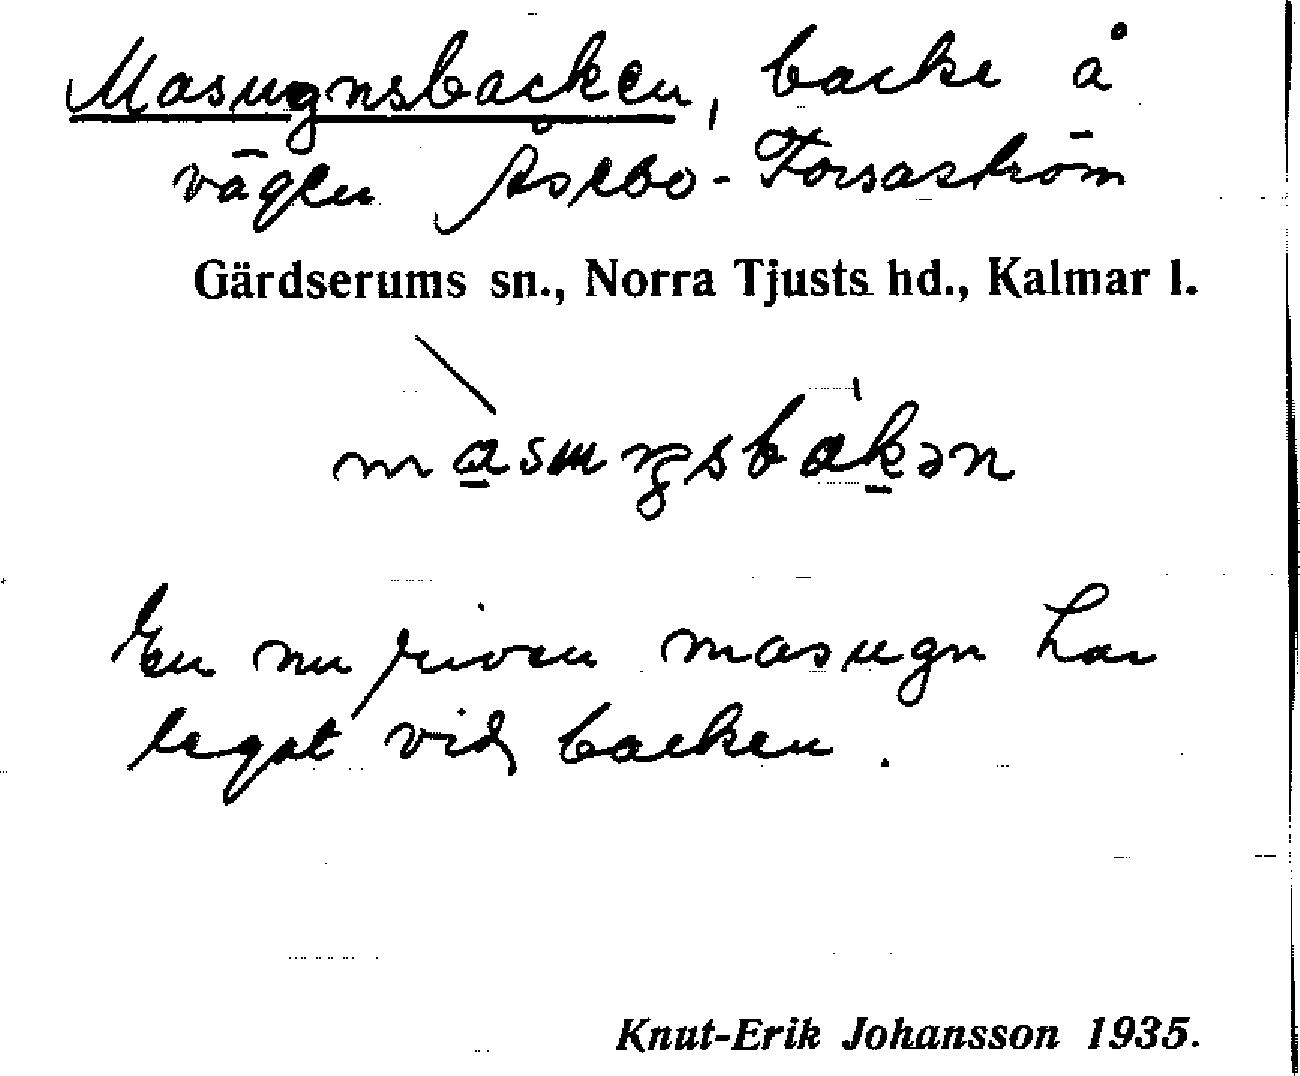 Masugnsbacken, backe å
vägen Åsebo-Forsaström
Gärdserums sn., Norra Tjusts hd., Kalmar l.
En nu riven masugn har
legat vid backen.
Knut-Erik Johansson 1935.